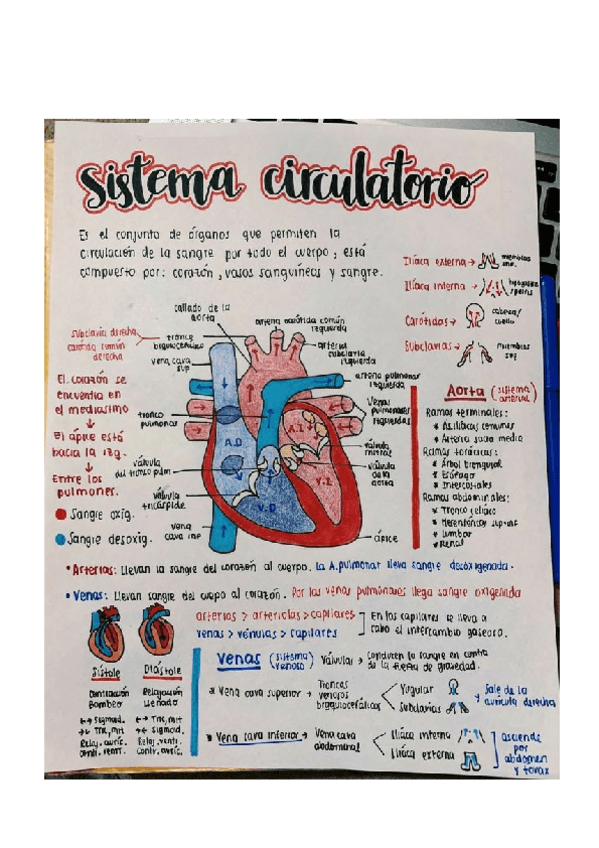 sistema circulatorio
Es el conjunto de órganos que permiten la
circulación de la sangre por todo el cuerpo, está
compuesto por: corazón, vasos sanguíneos y sangre.
Ilíaca externa →
Ilíaca interna →
Carótidas →
cabeza/
cuello
Subclavias →
miembros
callado de la
aorta
arteria carótida común
izquierda
subclavia derecha
carótida común
derecha
tronco
arteria
subclavia
izquierda
vena cava
sup
arteria pulmonar
izquierda
El corazón se
encuentra en
el mediastino
↓
El ápice está
hacia la izq.
↓
Entre los
pulmones.
Venas
pulmonares
izquierdas
tronco
pulmonar
A.D
A.I
válvula
mitral
válvula
del tronco pulm
válvula
de la
aorta
válvula
tricúspide
V.D
V.I
vena
cava inf
ápice
Sangre oxig.
Sangre desoxig.
Aorta (sistema
arterial)
Ramas terminales:
* As. ilíacas comunes
* Arteria sacra media
Ramas torácicas:
* Árbol bronquial
* Esófago
* Intercostales
Ramas abdominales:
* Tronco celíaco
* Lumbar
* Renal
• Arterias: Llevan la sangre del corazón al cuerpo. La A.pulmonar lleva sangre desoxigenada.
• Venas: Llevan sangre del cuerpo al corazón. Por las venas pulmonares llega sangre oxigenada
arterias > arteriolas > capilares
venas > vénulas > capilares
En los capilares se lleva a
cabo el intercambio gaseoso.
Sístole
Contracción
Bombeo
↔ Sigmoid.
→← Tric, mit
Relaj. auríc.
Contr. ventr.
Diástole
Relajación
Llenado
↔ Tric, mit
→← Sigmoid.
Relaj. ventr.
Contr. auríc.
Venas (sistema
venoso)
Válvulas → Conducen la sangre en contra
de la fuerza de gravedad.
* Vena cava superior →
Troncos
venosos
braquiocefálicos
Yugular
Subclavias
Sale de la
aurícula derecha
* Vena cava inferior → Vena cava
abdominal
Ilíaca interna
Ilíaca externa
asciende
por
abdomen
y tórax